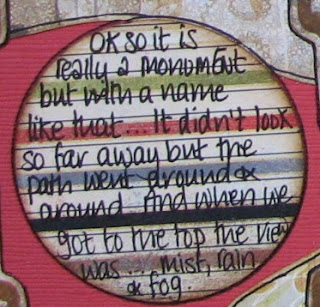 OK so it is
really a monument
but with a name
like that ... It didn't look
so far away but the
path went around &
around. And when we
got to the top the view
was ... mist, rain
& fog.